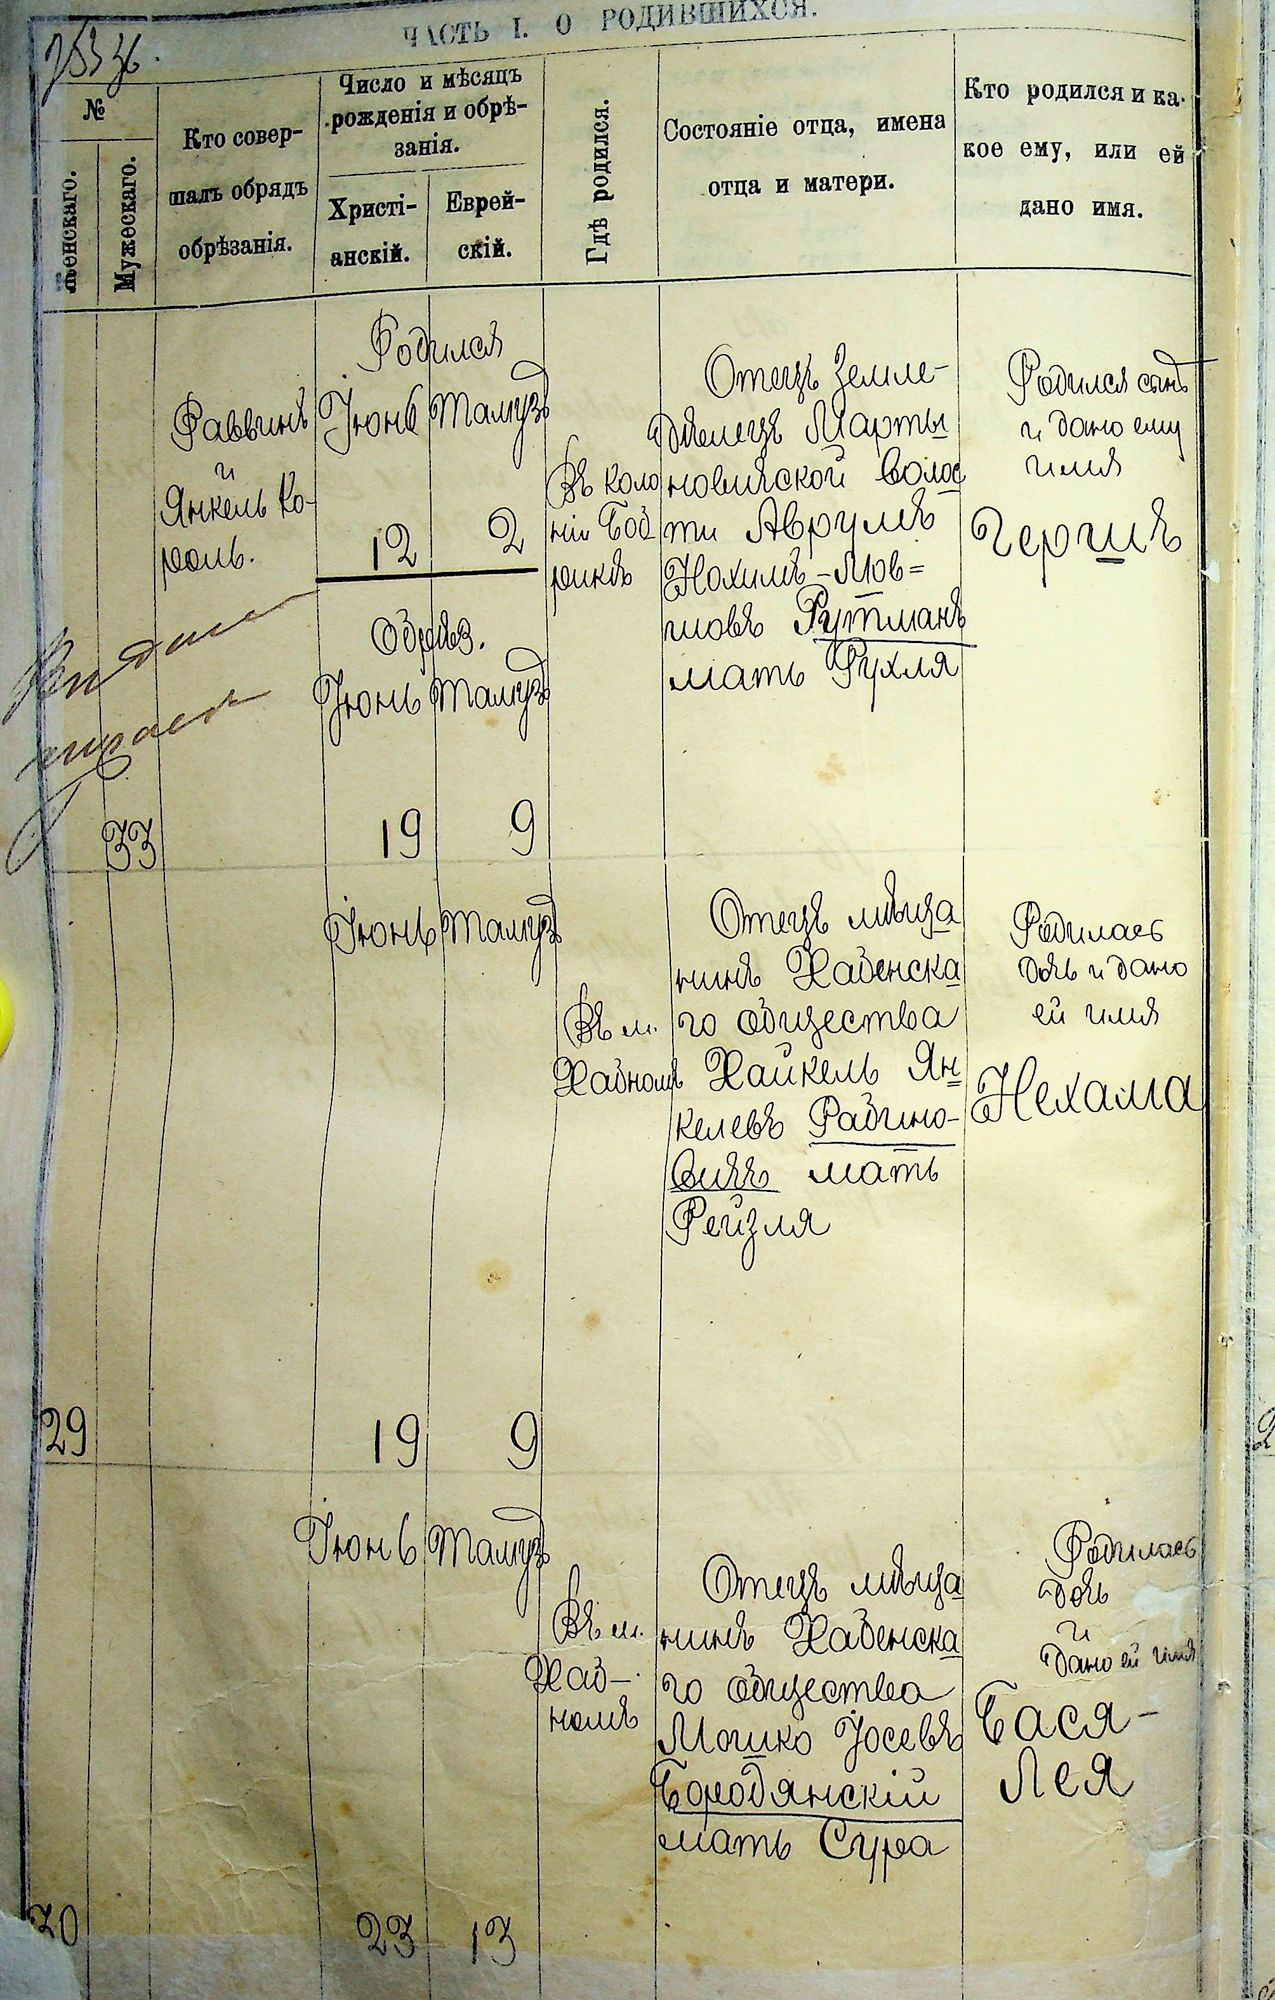 ЧАСТЬ I. О РОДИВШИХСЯ.
№
Женскаго.
Мужескаго.
Кто совер-
шалъ обрядъ
обрѣзанія.
Число и мѣсяцъ
рожденія и обрѣ-
занія.
Христі-
анскій.
Еврей-
скій.
Гдѣ родился.
Состояніе отца, имена
отца и матери.
Кто родился и ка-
кое ему, или ей
дано имя.
33
Раввинъ
и
Янкель Ко-
роль.
Родился
Іюнь Тамузъ
12 2
Обрѣз.
Іюнь Тамузъ
19 9
Въ коло
ніи Бод
рикѣ
Отецъ земле-
дѣлецъ Марты
новичской волос
ти Аврумъ
Нохимъ-Мов-
шовъ Рутманъ
мать Рухля
Родился сынъ
и дано ему
имя
Гершъ
29
Іюнь Тамузъ
19 9
Въ м.
Хабномъ
Отецъ мѣща
нинъ Хабенска
го общества
Хайкель Ян
келевъ Рабино-
вичъ мать
Рейзля
Родилась
дочь и дано
ей имя
Нехама
30
Іюнь Тамузъ
23 13
Въ м.
Хаб-
номъ
Отецъ мѣща
нинъ Хабенска
го общества
Мошко Іосевъ
Бородянскій
мать Сура
Родилась
дочь
и
дано ей имя
Бася-
Лея